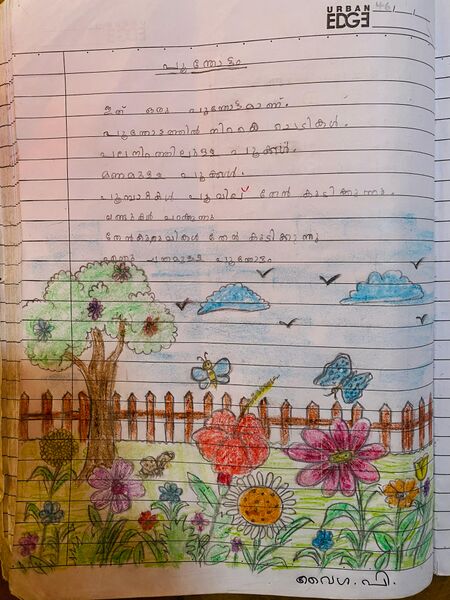 URBAN
EDGE
46
പൂന്തോട്ടം
ഇത് ഒരു പൂന്തോട്ടമാണ്.
പൂന്തോട്ടത്തിൽ നിറയെ ചെടികൾ.
പലനിറത്തിലുള്ള പൂക്കൾ.
മണമുള്ള പൂക്കൾ.
പൂമ്പാറ്റകൾ പൂവിലെ തേൻ കുടിക്കുന്നു.
വണ്ടുകൾ പറക്കുന്നു
തേൻകുരുവികൾ തേൻ കുടിക്കുന്നു
പൂന്തോട്ടം
വൈഗ. പി.